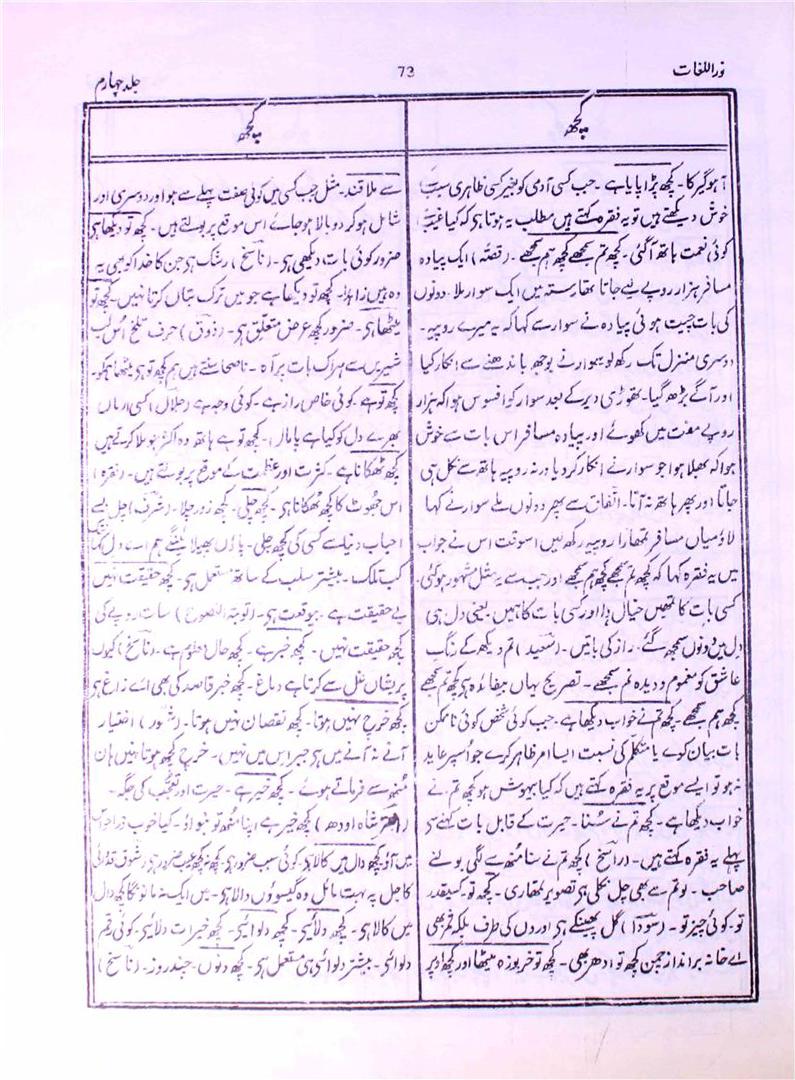 نوراللغات
73
جلد چہارم
کچھ
کچھ
آہوگیر کا۔ کچھ پڑا پایا ہے۔ جب کسی آدمی کو بغیر کسی ظاہری سبب
خوش دیکھتے ہیں تو یہ فقرہ کہتے ہیں مطلب یہ ہوتا ہی کہ کیا غیب سے
کوئی نعمت ہاتھ آگئی۔ کچھ تم سمجھے کچھ ہم سمجھے۔ (قصّہ) ایک پیادہ
مسافر ہزار روپے لیے جاتا تھا رستہ میں ایک سوار ملا۔ دونوں
کی بات چیت ہوئی پیادہ نے سوار سے کہا کہ یہ میرے روپیہ۔
دوسری منزل تک رکھ لو سوار نے بوجھ باندھنے سے انکار کیا
اور آگے بڑھ گیا۔ تھوڑی دیر کے بعد سوار کو افسوس ہوا کہ ہزار
روپے مفت میں کھوئے اور پیادہ مسافر اس بات سے خوش
ہوا کہ بھلا ہوا جو سوار نے انکار کردیا ورنہ روپیہ ہاتھ سے نکل ہی
جاتا اور پھر ہاتھ نہ آتا۔ اتفاق سے پھر دونوں ملے سوار نے کہا
لاؤ میاں مسافر تمھارا روپیہ رکھ لیں اسوقت اس نے جواب
میں یہ فقرہ کہا کہ کچھ تم سمجھے کچھ ہم سمجھے اور جب سے یہ مثل مشہور ہوگئی۔
کسی بات کا تمھیں خیال ہوا اور کسی بات کا ہمیں یعنی دل ہی
دل میں دونوں سمجھ گئے۔ راز کی باتیں۔ (سعید) تم دیکھ کے رنگ
عاشق کو مغموم و دیدہ نم سمجھے۔ تصریح یہاں بیفائدہ ہی کچھ تم سمجھے
کچھ ہم سمجھے۔ کچھ تم نے خواب دیکھا ہے۔ جب کوئی شخص کوئی ناممکن
بات بیان کرے یا متکلم کی نسبت ایسا امر ظاہر کرے جو اُسپر عاید
نہ ہو تو ایسے موقع پر یہ فقرہ کہتے ہیں کہ کیا بیہوش ہو کچھ تم نے
خواب دیکھا ہے۔ کچھ تم نے سُنا۔ حیرت کے قابل بات کہنے سے
پہلے یہ فقرہ کہتے ہیں۔ (راسخ) کچھ تم نے سنا منھ سے لگی بولنے
صاحب۔ لو تم سے بھی چل نکلی ہی تصویر تمھاری۔ کچھ تو کسیقدر
تو۔ کوئی چیز تو۔ (سودا) گل پھینکے ہی اوروں کی طرف بلکہ ثمر بھی
اے خانہ برانداز چمن کچھ تو ادھر بھی۔ کچھ تو خربوزہ میٹھا اور کچھ اوپر
سے ملا قند۔ مثل جب کسی میں کوئی صفت پہلے سے ہو اور دوسری اور
شامل ہوکر دوبالا ہوجائے اس موقع پر بولتے ہیں۔ کچھ تو دیکھا ہی
ضرور کوئی بات دیکھی ہی۔ (ناسخ) رشک ہی جن کا خدا کو بھی یہ
وہ ہیں زاہد۔ کچھ تو دیکھا ہے جو میں ترک بتاں کرتا نہیں۔ کچھ تو
میٹھا ہی۔ ضرور کچھ غرض متعلق ہی۔ (ذوق) حرف تلخ اُس لب
شیریں سے ہر اک بات پر آہ۔ ناصحا سنتے ہیں ہم کچھ تو ہی میٹھا ہمکو۔
کچھ تو ہے۔ کوئی خاص راز ہے۔ کوئی وجہ ہے (جلال) کسی ارماں
بھرے دل کو کیا ہے پامال۔ کچھ تو ہے ہاتھ وہ اکثر جو ملا کرتے ہیں
کچھ ٹھکانا ہے۔ کثرت اور عظمت کے موقع پر بولتے ہیں۔ (فقرہ)
اس جھوٹ کا کچھ ٹھکانا ہی۔ کچھ چلی۔ کچھ زور چلا۔ (شرف) چل بسے
احباب دنیا سے کسی کی کچھ چلی۔ پاؤں پھیلا ہم اے دل
کب تلک۔ بیشتر سلب کے ساتھ مستعمل ہی۔ کچھ حقیقت نہیں
بے حقیقت ہے۔ بیوقعت ہی۔ (توبۃ النصوح) سات روپے کی
کچھ حقیقت نہیں۔ کچھ خبر ہے۔ کچھ حال معلوم ہے۔ (ناسخ) کیوں
پریشاں غل سے کرتا ہے دماغ۔ کچھ خبر قاصد کی بھی اے زاغ ہی
کچھ خرچ نہیں ہوتا۔ کچھ نقصان نہیں ہوتا۔ (شعور) اختیار
آنے نہ آنے میں ہی جبر اس میں نہیں۔ خرچ کچھ ہوتا نہیں ہاں
منھ سے فرماتے ہوئے۔ کچھ خیر ہے۔ حیرت اور تعجب کی جگہ۔
(اختر شاہ اودھ) کچھ خیر ہے اپنا منھ تو بنواؤ۔ کیا خوب ذرا
میں آؤ کچھ دال میں کالا ہی۔ کوئی سبب ضرور ہی۔ کچھ نہ کچھ عیب ضرور ہی (شوق قدوائی)
کا جل پہ بہت مائل وہ گیسوؤں والا ہی۔ میں ایک نہ مانونگا کچھ دال
میں کالا ہی۔ کچھ دلائیے۔ کچھ دلوائیے۔ کچھ خیرات دلائیے۔ کوئی رقم
دلوائیے۔ بیشتر دلوائیے ہی مستعمل ہی۔ کچھ دنوں۔ چند روز۔ (ناسخ)